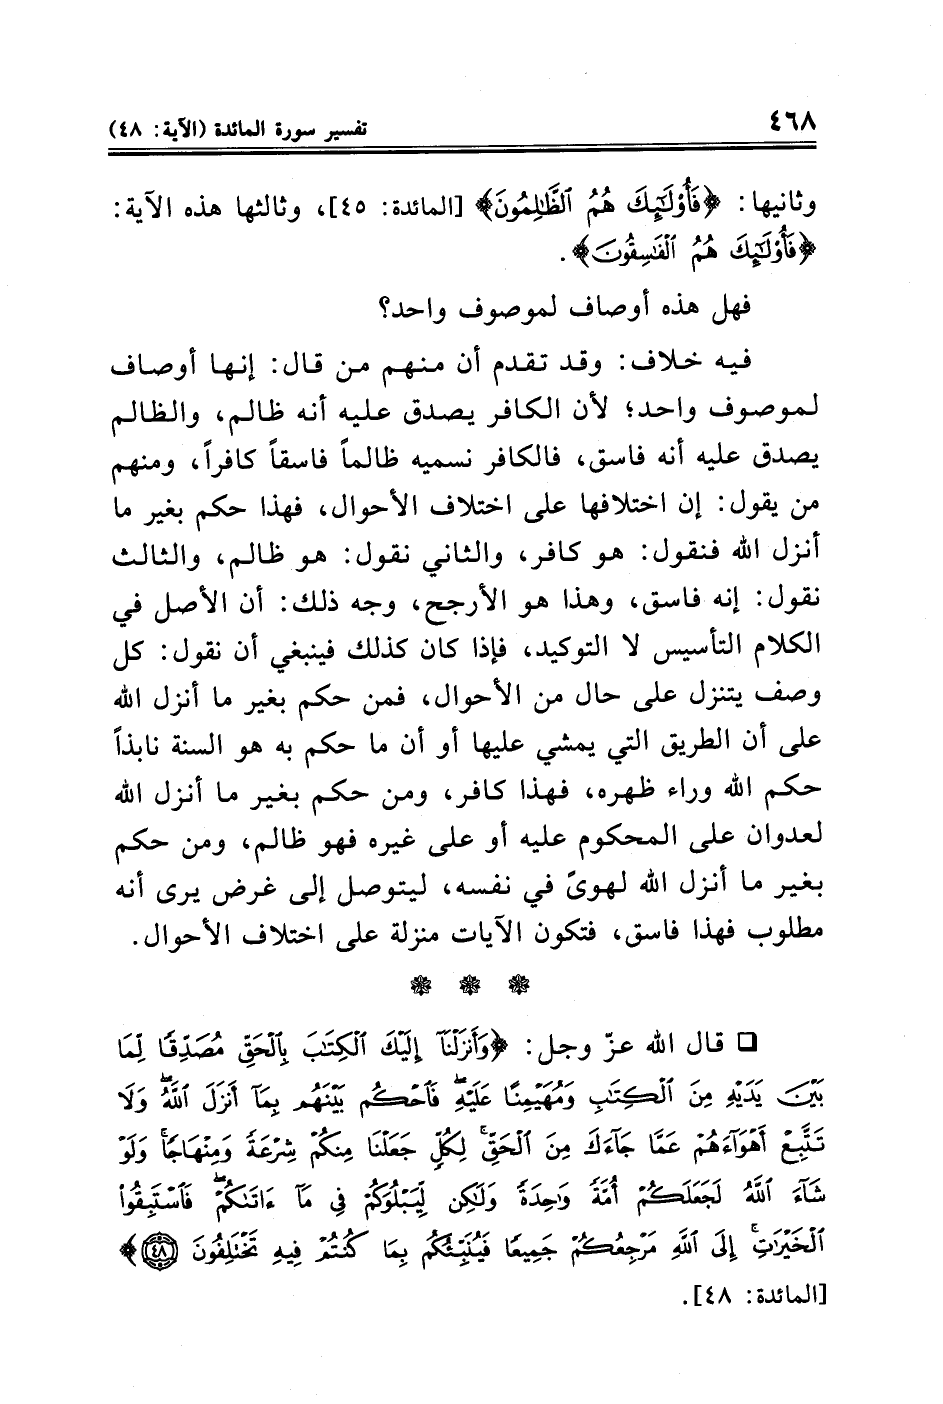 ٤٦٨
تفسير سورة المائدة (الآية: ٤٨)
وثانيها: ﴿فَأُوْلَٰٓئِكَ هُمُ ٱلظَّٰلِمُونَ﴾ [المائدة: ٤٥]، وثالثها هذه الآية:
﴿فَأُوْلَٰٓئِكَ هُمُ ٱلْفَٰسِقُونَ﴾.
فهل هذه أوصاف لموصوف واحد؟
فيه خلاف: وقد تقدم أن منهم من قال: إنها أوصاف
لموصوف واحد؛ لأن الكافر يصدق عليه أنه ظالم، والظالم
يصدق عليه أنه فاسق، فالكافر نسميه ظالماً فاسقاً كافراً، ومنهم
من يقول: إن اختلافها على اختلاف الأحوال، فهذا حكم بغير ما
أنزل الله فنقول: هو كافر، والثاني نقول: هو ظالم، والثالث
نقول: إنه فاسق، وهذا هو الأرجح، وجه ذلك: أن الأصل في
الكلام التأسيس لا التوكيد، فإذا كان كذلك فينبغي أن نقول: كل
وصف يتنزل على حال من الأحوال، فمن حكم بغير ما أنزل الله
على أن الطريق التي يمشي عليها أو أن ما حكم به هو السنة نابذاً
حكم الله وراء ظهره، فهذا كافر، ومن حكم بغير ما أنزل الله
لعدوان على المحكوم عليه أو على غيره فهو ظالم، ومن حكم
بغير ما أنزل الله لهوىً في نفسه، ليتوصل إلى غرض يرى أنه
مطلوب فهذا فاسق، فتكون الآيات منزلة على اختلاف الأحوال.
❁ ❁ ❁
❑ قال الله عزّ وجل: ﴿وَأَنزَلْنَآ إِلَيْكَ ٱلْكِتَٰبَ بِٱلْحَقِّ مُصَدِّقًا لِّمَا
بَيْنَ يَدَيْهِ مِنَ ٱلْكِتَٰبِ وَمُهَيْمِنًا عَلَيْهِ ۖ فَٱحْكُم بَيْنَهُم بِمَآ أَنزَلَ ٱللَّهُ ۖ وَلَا
تَتَّبِعْ أَهْوَآءَهُمْ عَمَّا جَآءَكَ مِنَ ٱلْحَقِّ ۚ لِكُلٍّ جَعَلْنَا مِنكُمْ شِرْعَةً وَمِنْهَاجًا ۚ وَلَوْ
شَآءَ ٱللَّهُ لَجَعَلَكُمْ أُمَّةً وَٰحِدَةً وَلَٰكِن لِّيَبْلُوَكُمْ فِى مَآ ءَاتَىٰكُمْ ۖ فَٱسْتَبِقُوا۟
ٱلْخَيْرَٰتِ ۚ إِلَى ٱللَّهِ مَرْجِعُكُمْ جَمِيعًا فَيُنَبِّئُكُم بِمَا كُنتُمْ فِيهِ تَخْتَلِفُونَ ٤٨﴾
[المائدة: ٤٨].